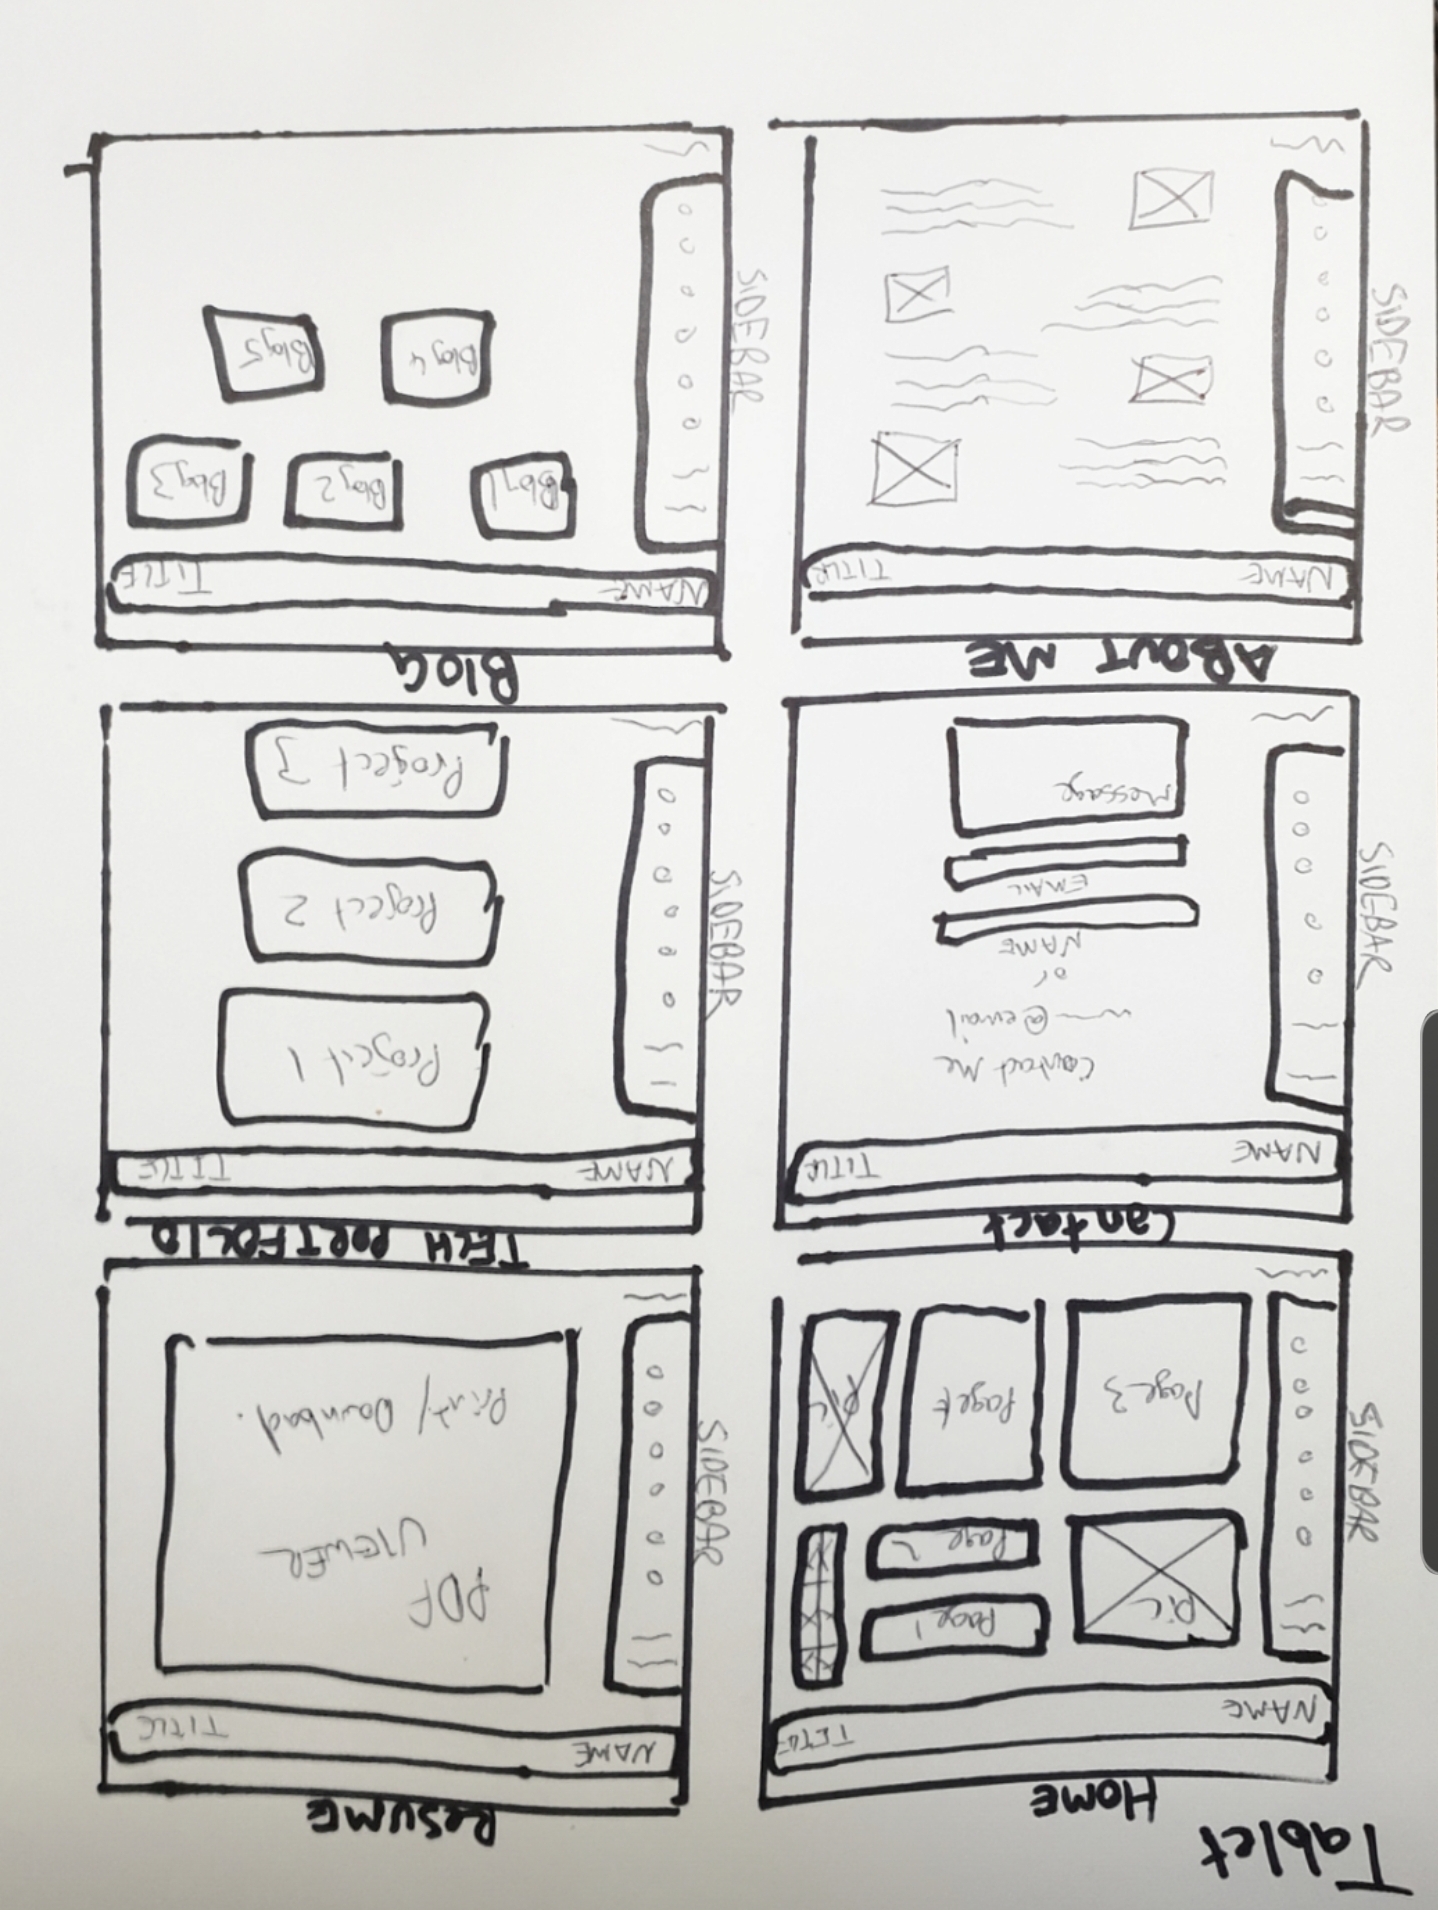 Tablet
HOME
NAME
TITLE
SIDEBAR
Pic
Page 1
Page 2
Page 3
Pic
RESUME
NAME
TITLE
SIDEBAR
PDF
VIEWER
Print/ Download.
Contact
NAME
TITLE
SIDEBAR
Contact Me
@email
or
NAME
EMAIL
Message
TECH PORTFOLIO
NAME
TITLE
SIDEBAR
Project 1
Project 2
Project 3
ABOUT ME
NAME
TITLE
SIDEBAR
BlOG
NAME
TITLE
SIDEBAR
Blog 1
Blog 2
Blog 3
Blog 4
Blog 5